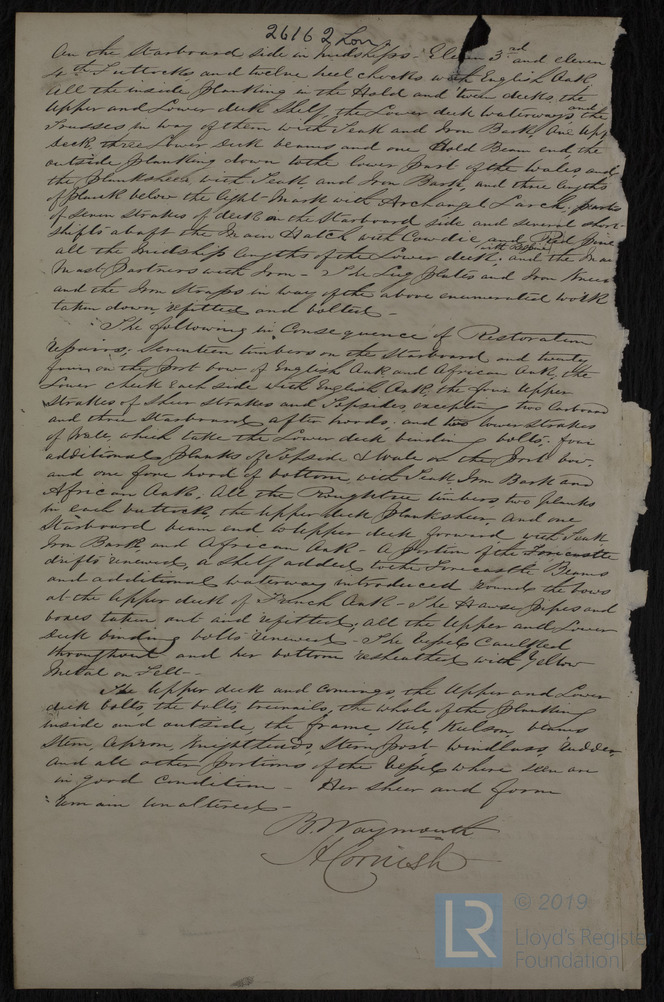 26162 Lon
On the Starboard side in midships. Eleven 3rd and eleven
4th Futtocks and twelve heel chocks with English Oak
All the inside planking in the Hold and 'tween decks, the
Upper and Lower deck Shelf, the Lower deck waterways, and the
Trusses in way of them with Teak and Iron Bark, One Upp
deck, three Lower deck beams and one Hold Beam end, the
outside planking down to the lower part of the Wales and
the planksheer, with Teak and Iron Bark, and three lengths
of plank below the light-mark with Archangel Larch, parts
of seven strakes of deck on the Starboard side and several short
shifts abaft the Main Hatch with Cowdie and Red Pine
all the Midship lengths of the Lower deck, with B Pine and the Main
Mast Partners with Iron - The Lug plates and Iron Knees
and the Iron Straps in way of the above enumerated work
taken down, refitted and bolted -
The following in Consequence of Restoration
repairs. Seventeen timbers on the Starboard and twenty
four on the Port bow of English Oak and African Oak, the
Lower cheek each side with English Oak, the four Upper
Strakes of Sheer strakes and Topsides, excepting two Larboard
and three Starboard after hoods, and two lower strakes
of Wale, which take the Lower deck binding bolts, four
additional planks of Topside & Wale on the Port bow,
and one fore hood of bottom with Teak Iron Bark and
African Oak, All the Roughtree timbers, two planks
in each buttock, the Upper deck planksheer, and one
Starboard beam end to Upper deck forward with Teak
Iron Bark, and African Oak - A portion of the Forecastle
drifts renewed, a shelf added to the Forecastle Beams
and additional waterway introduced round the bows
at the Upper deck of French Oak - The Hawse pipes and
boxes taken out and refitted; all the Upper and Lower
deck binding bolts renewed - The Vessel Caulked
throughout and her bottom resheathed with Yellow
Metal on Felt -
The Upper deck and comings, the Upper and Lower
deck bolts, the bolts, treenails, the whole of the planking
inside and outside, the frame, Keel, Keelson, beams
Stem, Apron, Knightheads, Stern post, windlass, Rudder
and all other portions of the Vessel where seen are
in good condition - Her sheer and form
remain unaltered -
B. Waymouth
H Cornish
LR © 2019
Lloyd's Register
Foundation